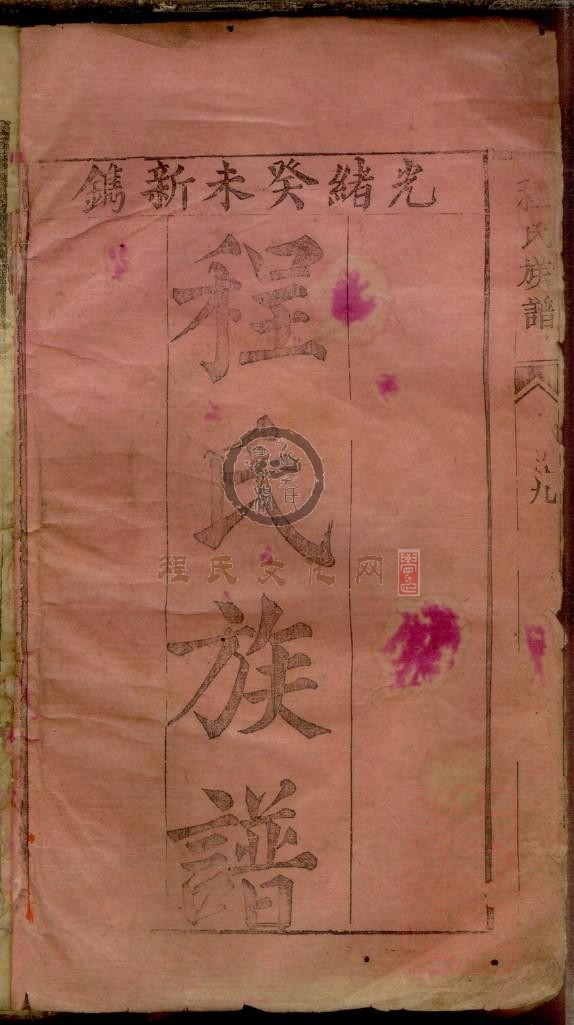 光緒癸未新鐫
程氏族譜
程氏族譜
程氏文化网